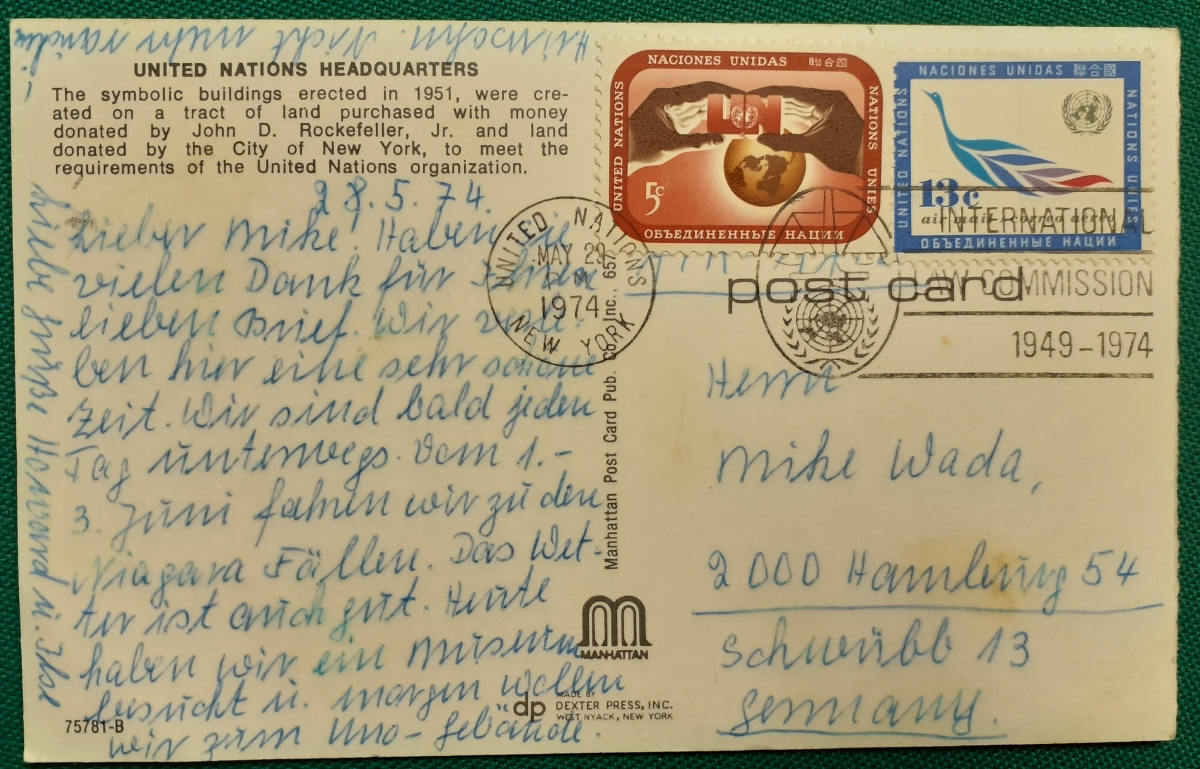 UNITED NATIONS HEADQUARTERS
The symbolic buildings erected in 1951, were cre-
ated on a tract of land purchased with money
donated by John D. Rockefeller, Jr. and land
donated by the City of New York, to meet the
requirements of the United Nations organization.
28.5.74.
Lieber Mike! Haben Sie
vielen Dank für Ihren
lieben Brief. Wir verle-
ben hier eine sehr schöne
Zeit. Wir sind bald jeden
Tag unterwegs. Vom 1.-
3. Juni fahren wir zu den
Niagara Fällen. Das Wet-
ter ist auch gut. Heute
haben wir ein Museum
besucht u. morgen wollen
wir zum Uno-Gebäude.
Liebe Grüße Howard u. Ilse
Nicht mehr
75781-B
Manhattan Post Card Pub. Co., Inc., 657
MANHATTAN
dp
MADE BY
DEXTER PRESS, INC.
WEST NYACK, NEW YORK
NACIONES UNIDAS 聯合國
UNITED NATIONS
NATIONS UNIES
UN
5c
ОБЪЕДИНЕННЫЕ НАЦИИ
NACIONES UNIDAS 聯合國
UNITED NATIONS
NATIONS UNIES
13c
air mail-correo aereo
ОБЪЕДИНЕННЫЕ НАЦИИ
UNITED NATIONS
MAY 29
PM
1974
NEW YORK
INTERNATIONAL
LAW COMMISSION
1949-1974
post card
Herrn
Mike Wada,
2000 Hamburg 54
Schwübb 13
Germany.